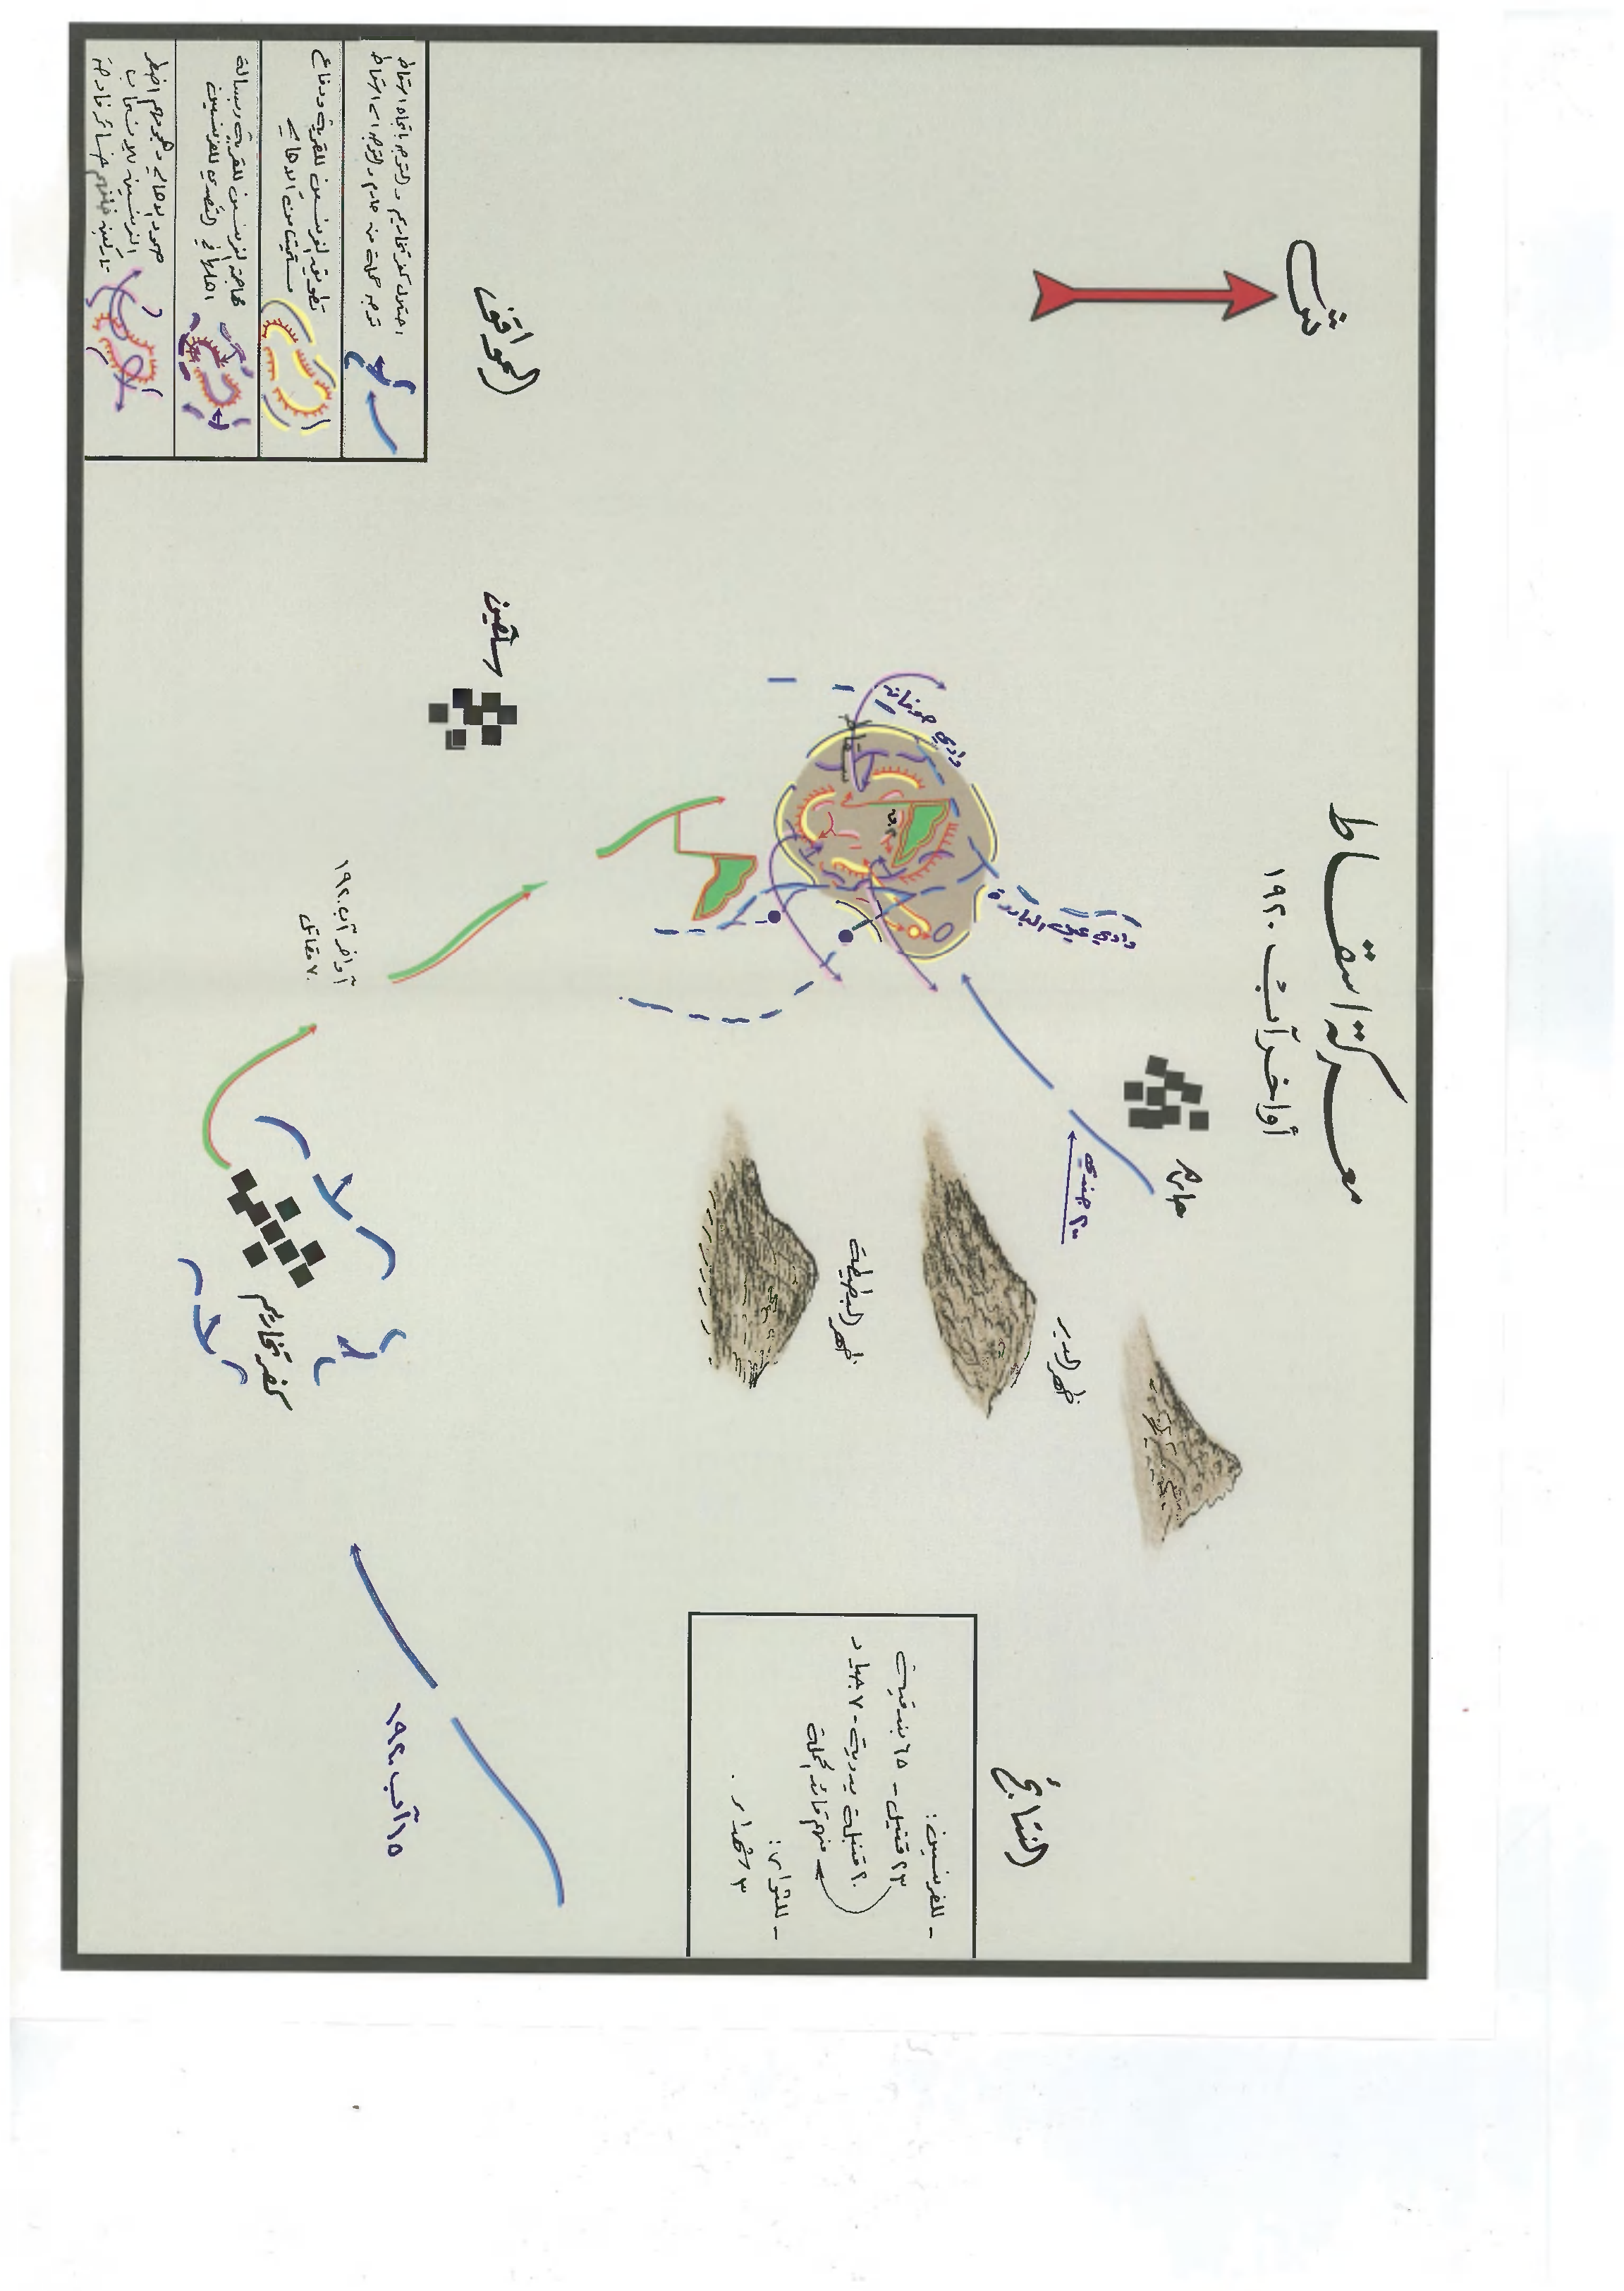 معركة اسقاط
أواخر آب ١٩٢٠
ش
حارم
٢٠٠ جندي
وادي عين الباردة
وادي
ظهر الدير
ظهر البطيطة
سلقين
أواخر آب ١٩٢٠
٧٠ مقاتل
كفرتخاريم
١٥ آب ١٩٢٠
النتائج
- للفرنسيين:
٢٣ قتيل - ٦٥ بندقية
٢٠ قنبلة يدوية - ٧ جياد
منهم قائد الحملة
- للثوار:
٣ شهداء.
المواقف
احتلال كفرتخاريم والتوجه باتجاه اسقاط
توجه حملة من حارم والتوجه إلى اسقاط
تطويق الفرنسيين للقرية ودفاع
مستميت من الأهالي
مهاجمة الفرنسيين للقرية وبسالة
أهلها في التصدي للفرنسيين
صمود الأهالي وهجومهم اضطر
الفرنسيين للانسحاب
تاركين خلفهم خسائر فادحة